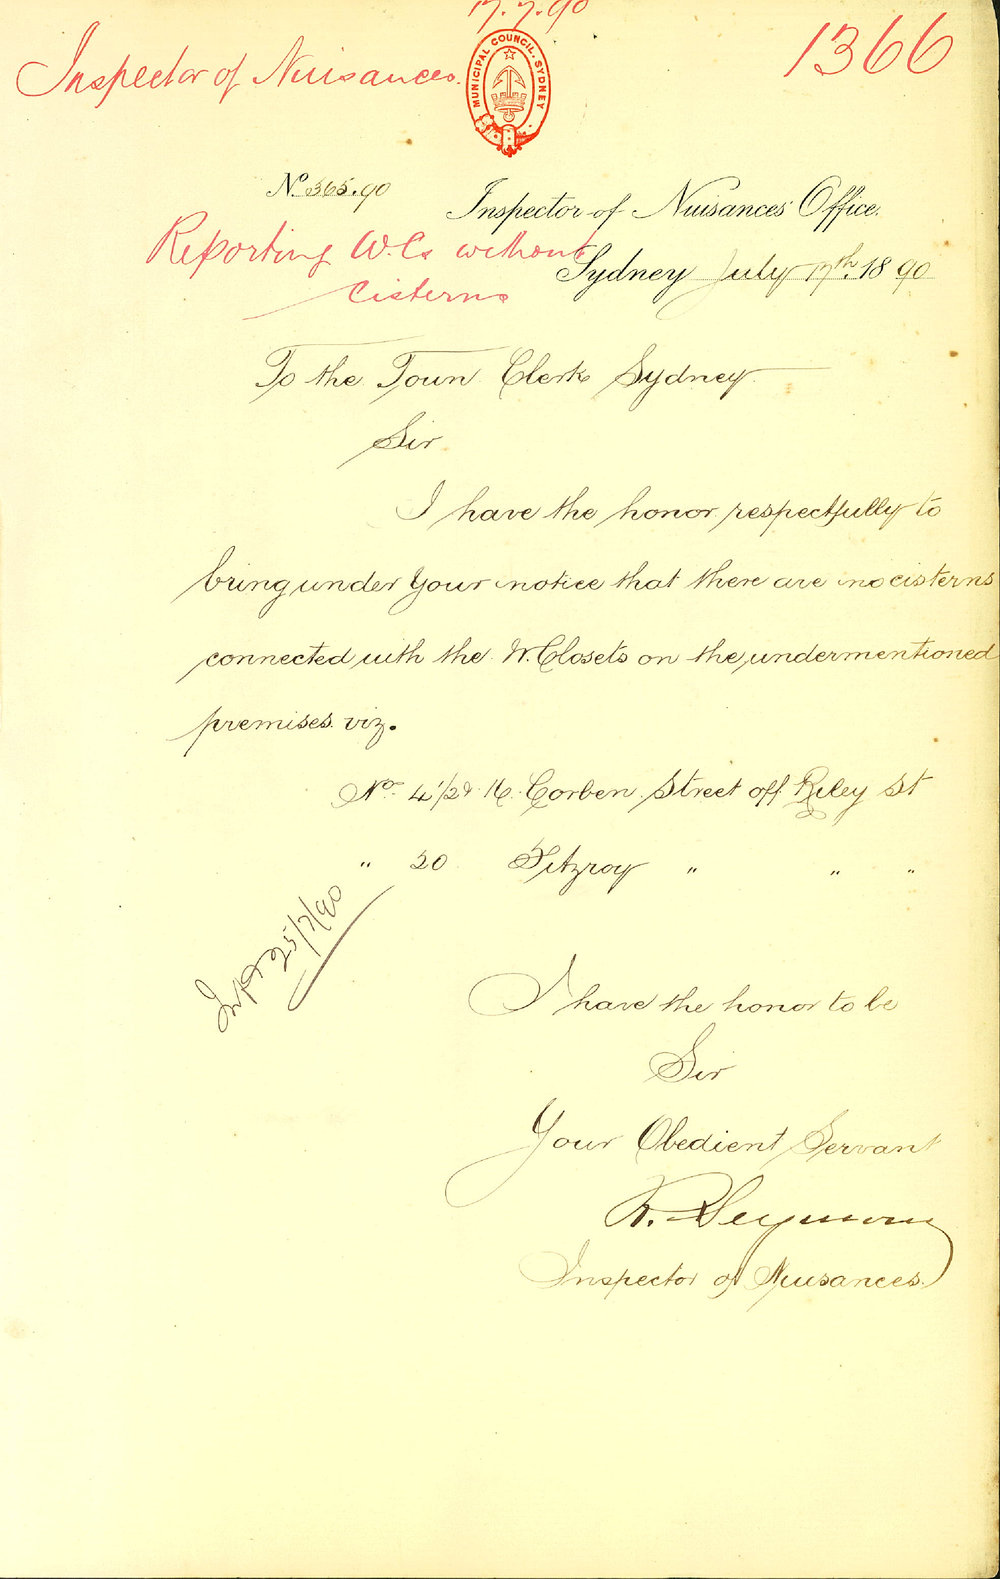 17.7.90
Inspector of Nuisances.
1366
MUNICIPAL COUNCIL. SYDNEY
No 365.90
Inspector of Nuisances' Office.
Reporting W.Cs without
cisterns
Sydney July 17th 1890
To the Town Clerk Sydney
Sir
I have the honor respectfully to
bring under your notice that there are no cisterns
connected with the W. Closets on the undermentioned
premises viz.
No. 4 1/2 & 16. Corben Street off Riley St
" 20 Fitzroy " " "
25/7/90
I have the honor to be
Sir
Your Obedient Servant
R. Seymour
Inspector of Nuisances.